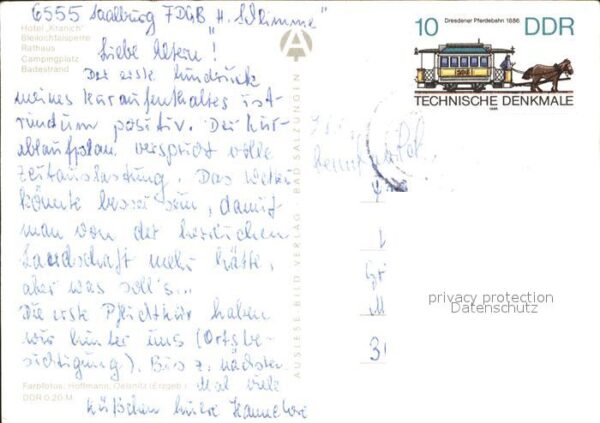 6555 Saalburg FDGB H. "Skrimme"
Hotel „Kranich"
Bleilochtalsperre
Rathaus
Campingplatz
Badestrand
Liebe Eltern!
Der erste Eindruck
meines Kuraufenthaltes ist
rundum positiv. Der Kur-
ablaufplan verspricht volle
Zeitauslastung. Das Wetter
könnte besser sein, damit
man von der herrlichen
Landschaft mehr hätte,
aber was soll's...
Die erste Pflichtkür haben
wir hinter uns (Ortsbe-
sichtigung). Bis z. nächsten
Mal viele
Küßchen Eure Hannelore
Farbfotos: Hoffmann, Oelsnitz (Erzgeb.)
DDR 0,20 M
AUSLESE BILD VERLAG BAD SALZUNGEN
A
10 Dresdener Pferdebahn 1886 DDR
TECHNISCHE DENKMALE
1986
privacy protection
Datenschutz